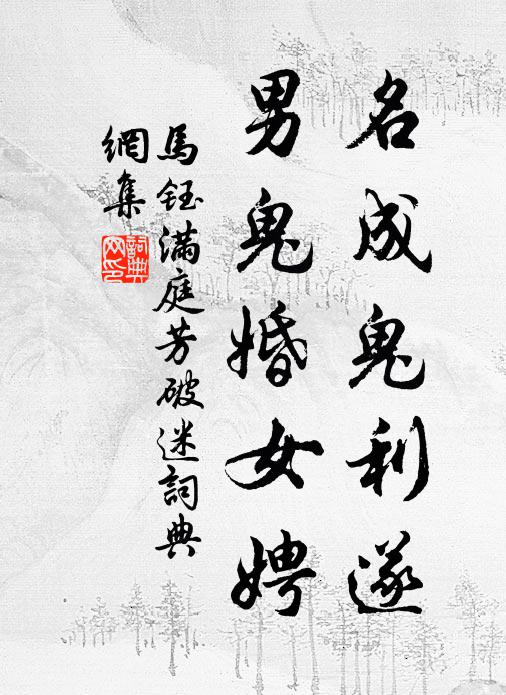 名成鬼利遂
男鬼婚女娉
馬鈺滿庭芳破迷詞典
網集
詞典
网印